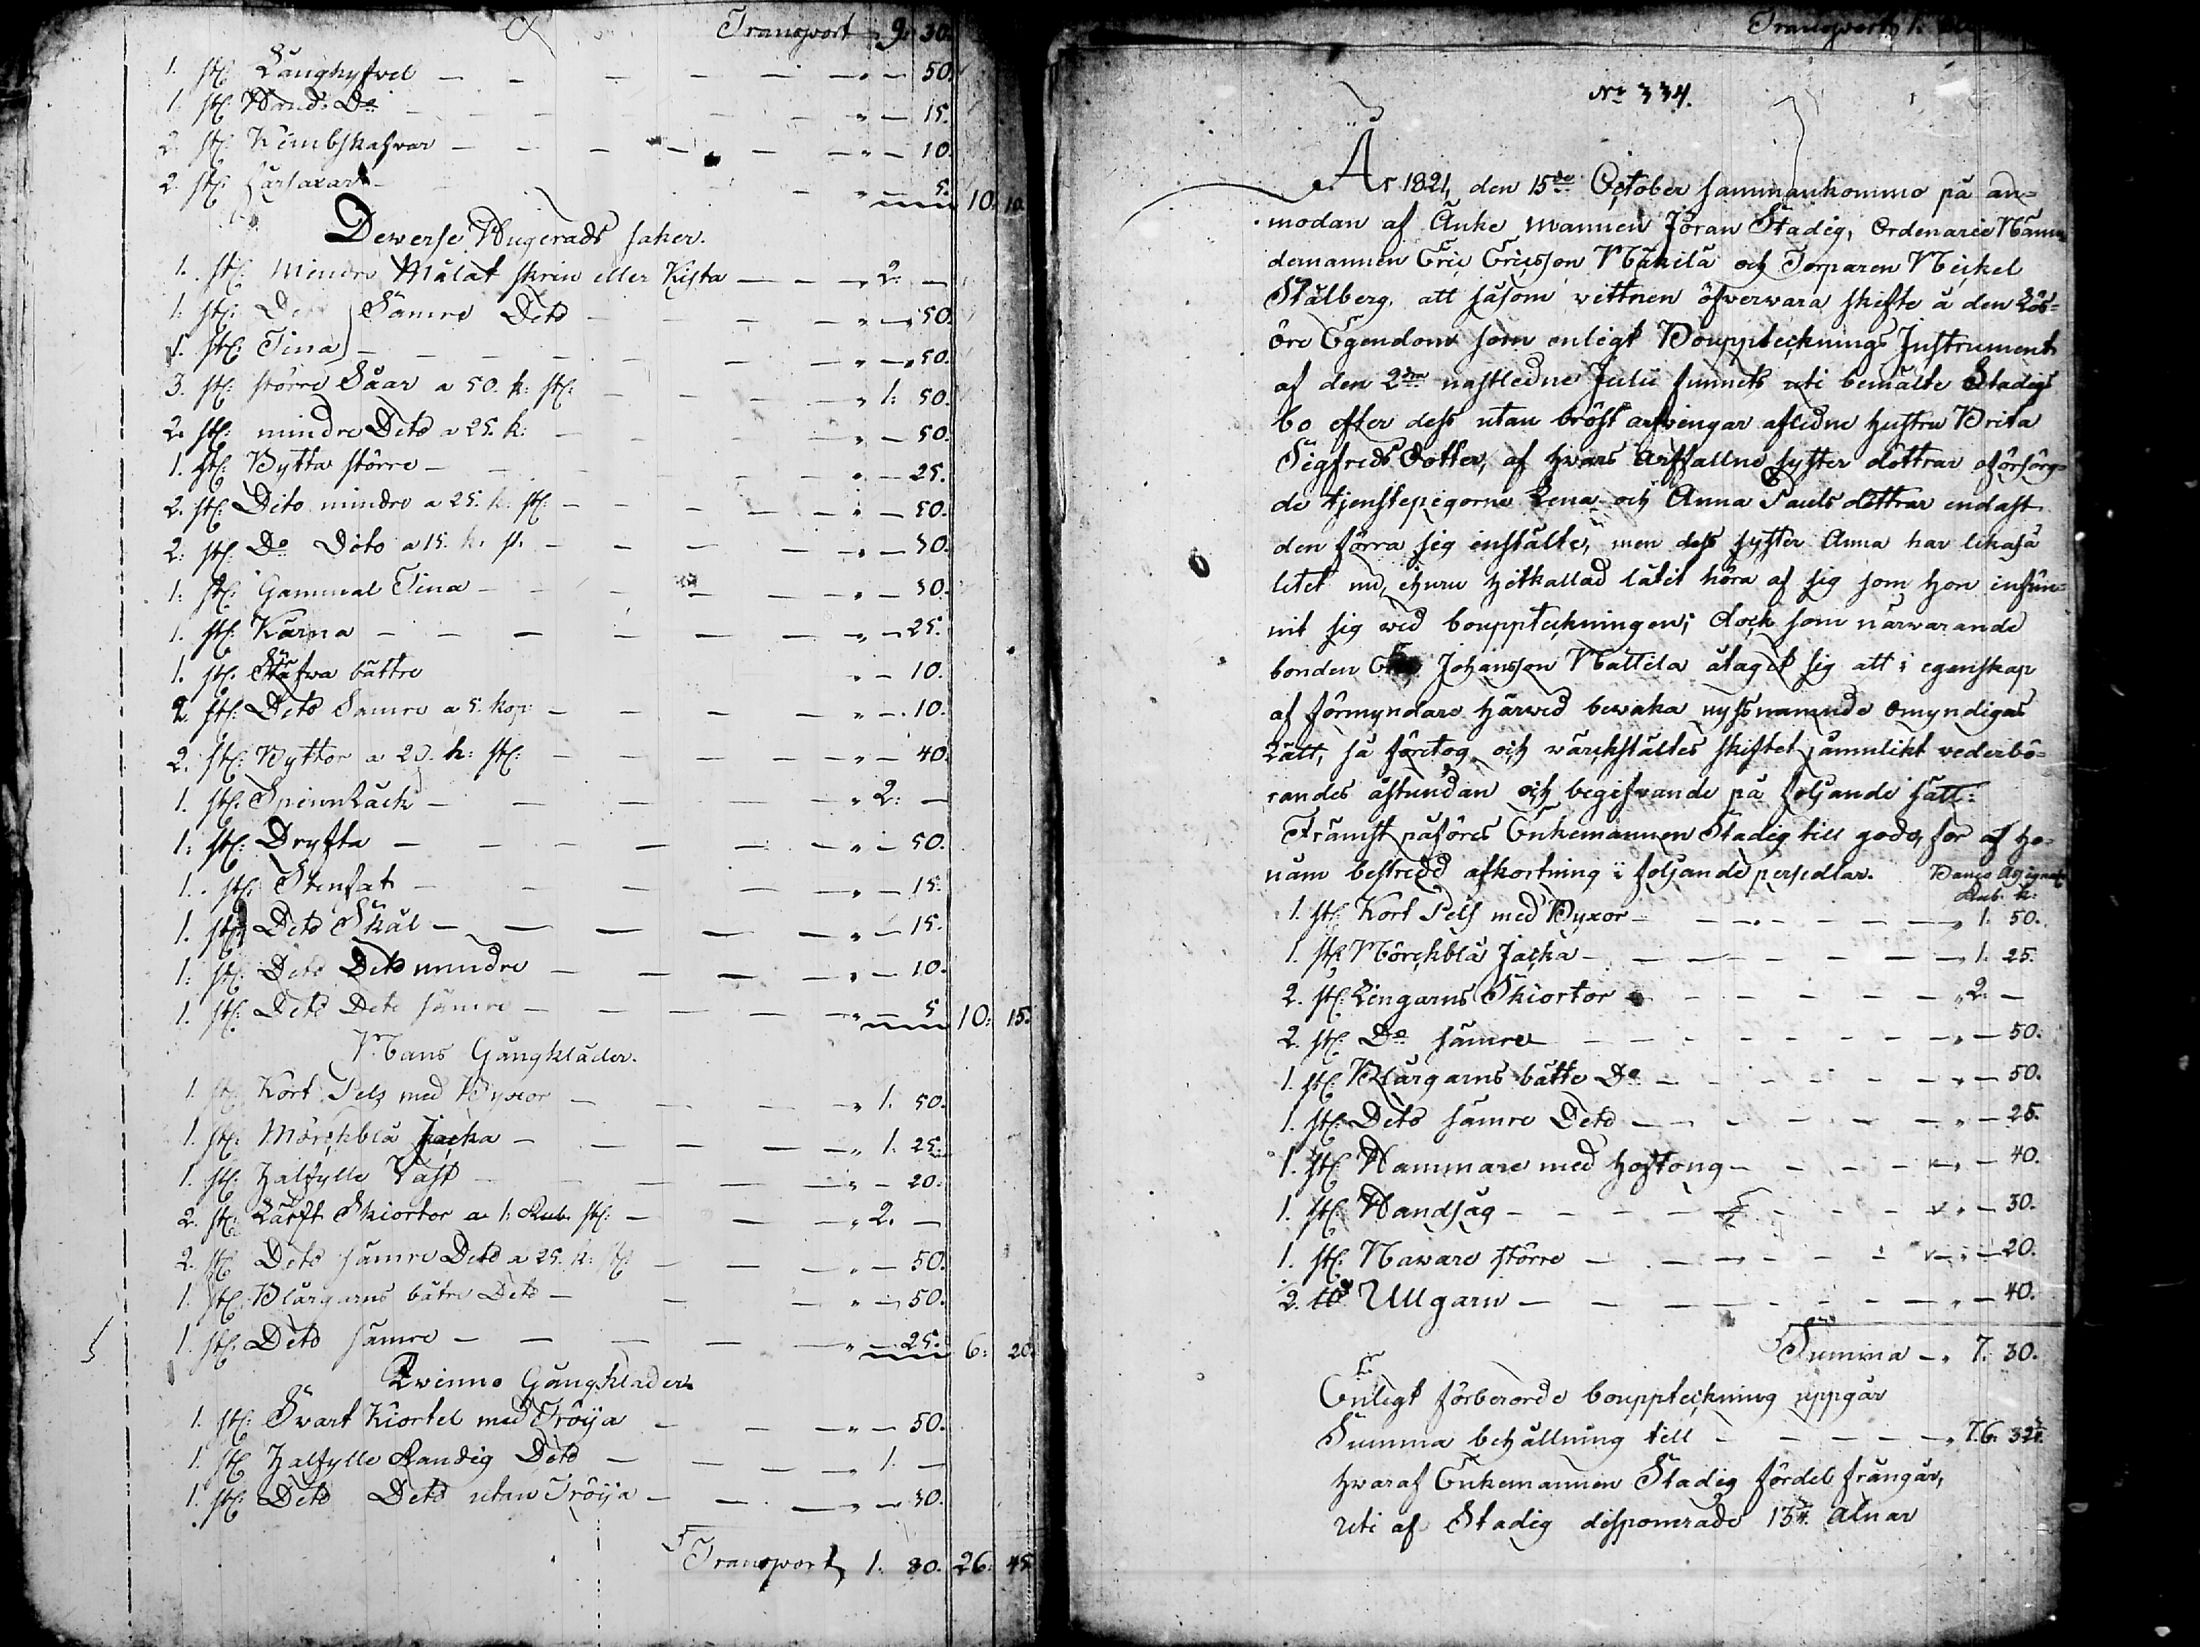 Transport 9: 30.
1. st: Långhyfvel — 50.
1. st: Hand. Do — 15.
2. st: Kimbskafvar — 10.
2. st: — 5. 10. 10.
Dewerse Husgerads saker.
1. st: mindre Målat skrin eller Kista — 2: —
1: st: Sämre Dito — 50.
1. st: Tina — 50.
3. st: större Såar a 50. k: st: 1: 50.
2. st: mindre Dito a 25. k: — 50.
1. st: Bytta större — 25.
2. st: Dito mindre a 25. k. st: — 50.
2: st: Do Dito a 15. k. st. — 30.
1: st: Gammal Tina — 30.
1. st: Kärna — 25.
1. st. bättre — 10.
2. st: Dito Sämre a 5. kop: — 10.
2. st: Byttor a 20. k: st: — 40.
1. st: Spinnråck — 2: —
1: st: Dryfta — 50.
1. st: Stenfat — 15.
1. st: Dito Skål — 15.
1: st: Dito Dito mindre — 10.
1. st: Dito Dito sämre — 5 10: 15.
Mans Gångkläder.
1. st: Kort Pels med Byxor — 1. 50.
1. st: Mörckblå Jacka — 1. 25.
1. st: Halfylle Väst — 20.
2. st: Lärft Skiortor a 1: Rub. st: — 2. —
2. st: Dito sämre Dito a 25. k: st: — 50.
1. st: Blårgarns bätre Dito — 50.
1. st: Dito sämre — 25. 6: 20.
Qvinno Gångkläder.
1. st: Svart Kiortel med Tröija — 50.
1. st: Halfylle Randig Dito — 1. —
1. st: Dito Dito utan Tröija — 30.
Transport, 1. 80. 26: 45.
Transport, 1.
No 334.
År 1821, den 15de October sammankommo på an-
modan af Änke mannen Jöran Stadig, Ordenarie Nämn
demannen Eric Ericsson Mäkilä och Torparen Mickel
Stålberg, att såsom vittnen öfvervara skifte å den Lös-
öre Egendom som enligt Boupptecknings Instrument
af den 2dra nästledne Julii funnits uti bemälte Stadigs
bo efter dess utan bröst arfvingar aflidne hustru Brita
Sigfreds Dotter, af hvars Arffallne syster döttrar oförsörg-
de tjenstepigorne Lena och Anna Pauls döttrar endast
den förra sig instälte, men dess syster Anna har likaså
litet nu, ehuru hitkallad låtit höra af sig som hon infun-
nit sig wid bouppteckningen; dock som närwarande
bonden Johansson Mattila åtagit sig att i egenskap
af förmyndare härwid bewaka nyssnämnde omyndigas
Rätt, så företog och wärckstältes skiftet jämnlikt vederbö-
randes åstundan och begifvande på följande sätt:
Främst påföres Enkemannen Stadig till godo, för af ho-
nom bestredd afkortning i följande persedlar. Banco Assignat
Rub. k:
1. st: Kort Pels med Byxor — 1. 50.
1. st: Mörckblå Jacka — 1. 25.
2. st: Lingarns Skiortor — 2. —
2. st: Do sämre — 50.
1. st: Blårgarns bätte Do — 50.
1. st: Dito sämre Dito — 25.
1. st: Hammare med hoftong — 40.
1. st: Handsåg — 30.
1. st: Naware större — 20.
2. Ullgarn — 40.
Summa — 7. 30.
Enligt förberörde bouppteckning uppgår
Summa behållning till — 76. 32.
hvaraf Enkemannen Stadig fördel frångår,
uti af Stadig disponerade alnar